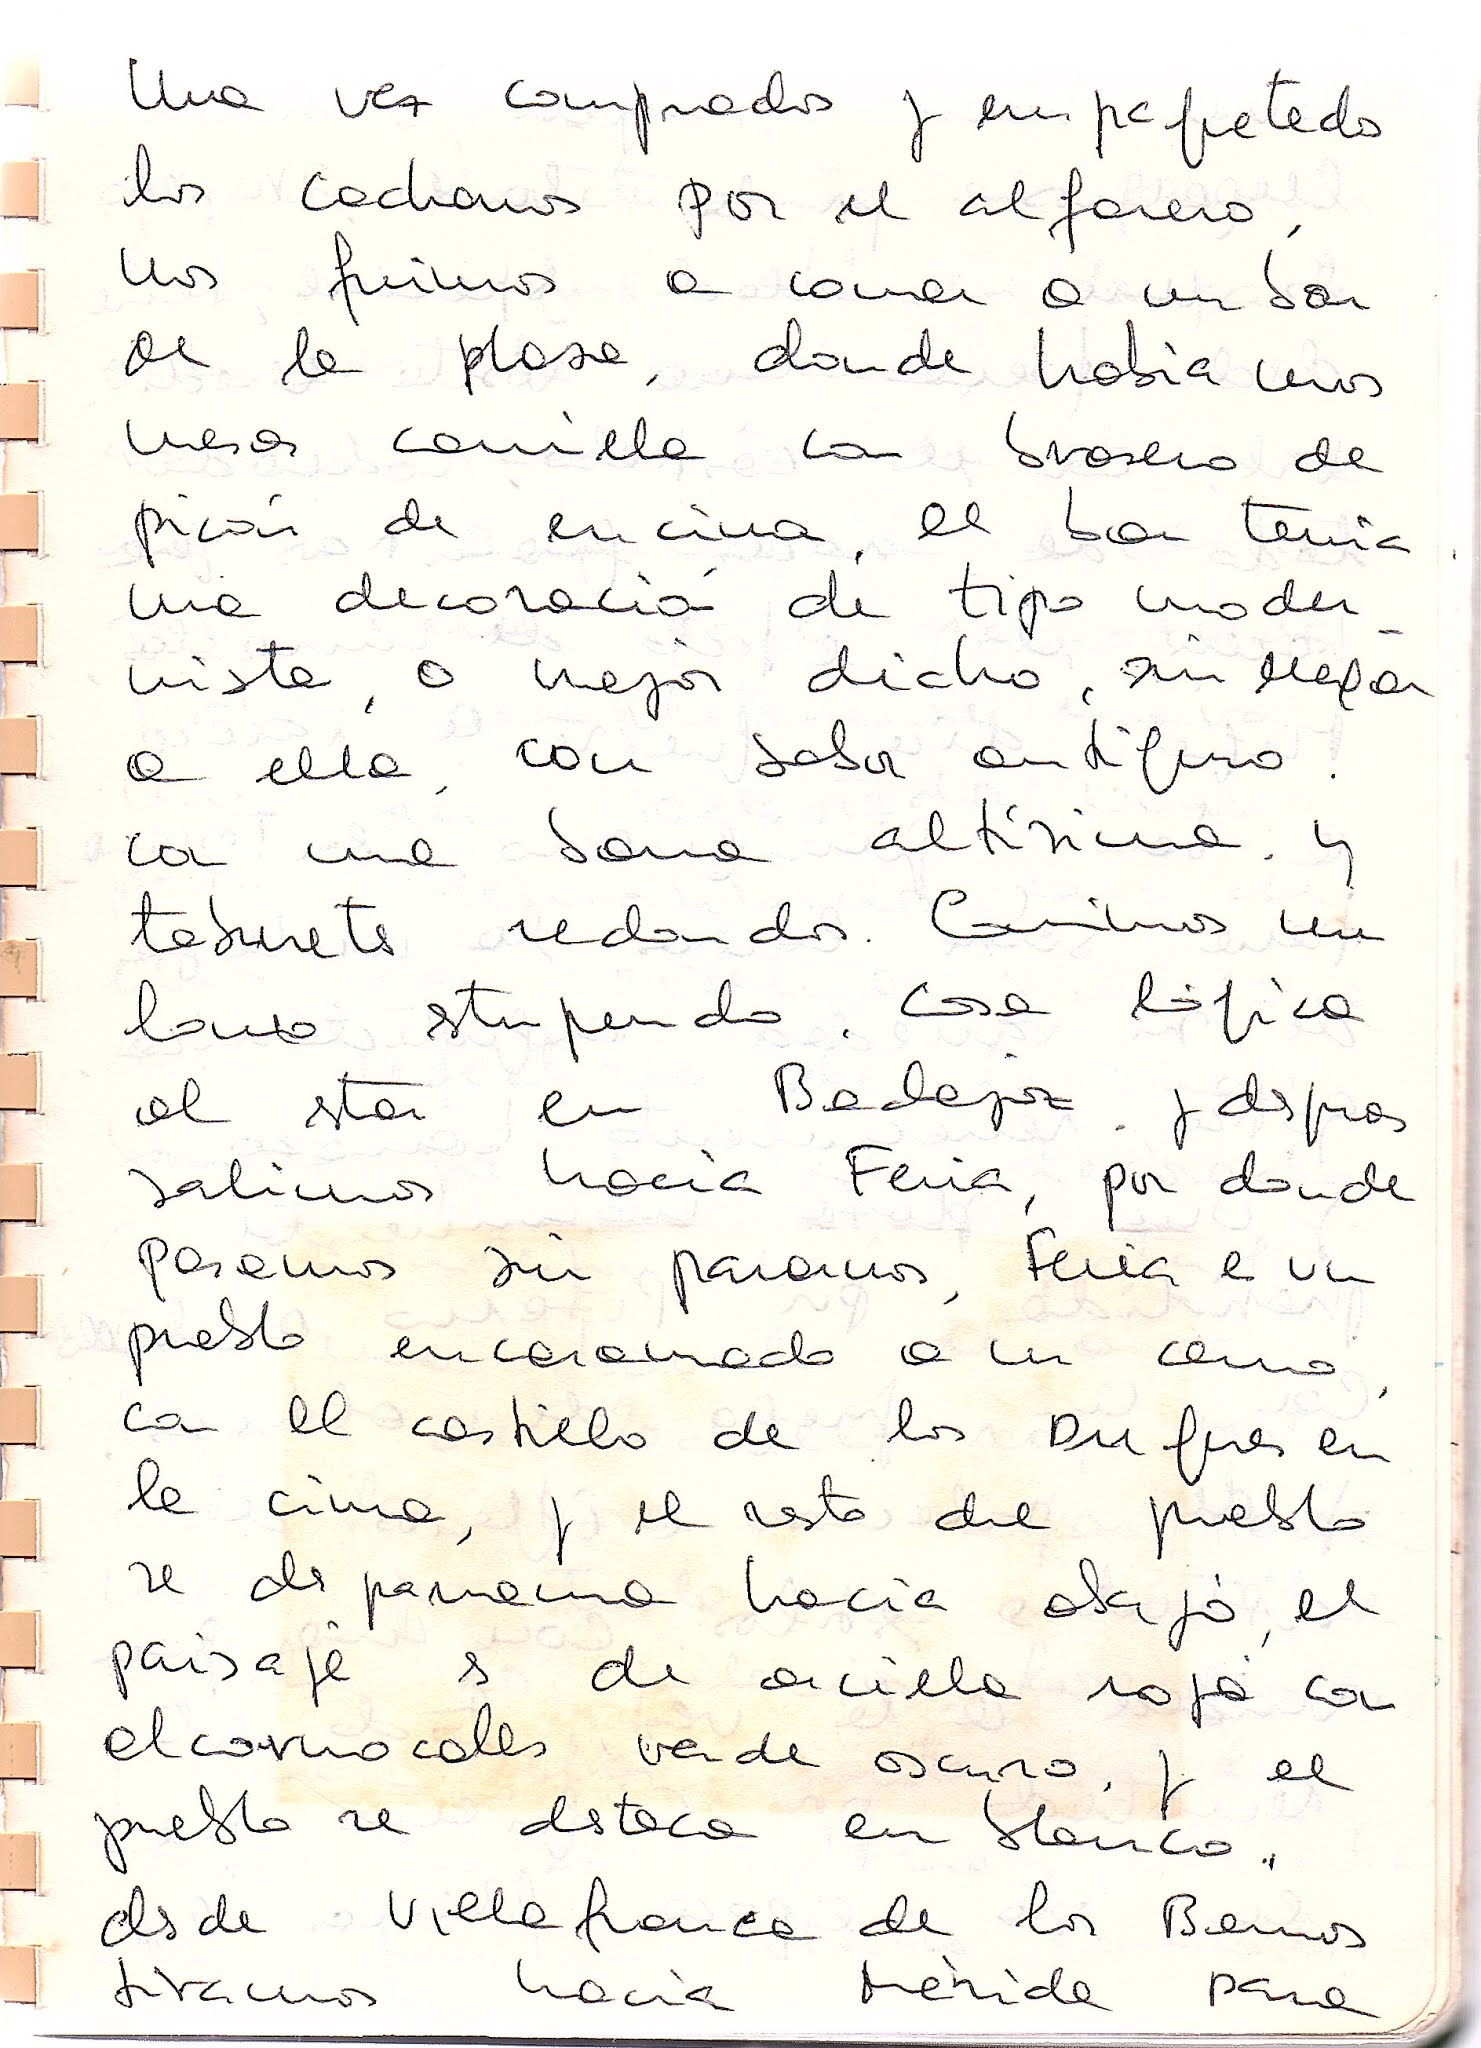 Una vez comprados y empaquetado
los cacharros por el alfarero,
nos fuimos a comer a un bar
de la plaza, donde había unos
mesas camilla con brasero de
picón de encina, el bar tenia
una decoración de tipo moder-
nista, o mejor dicho, sin llegar
a ella, con sabor antiguo.
con una barra altísima y
taburets redondos. Comimos un
lomo stupendo, cosa lógica
al star en Badajoz, y dspues
salimos hacia Feria, por donde
pasamos sin pararnos, Feria e un
pueblo encaramado a un cerro,
con el castillo de los Duques en
la cima, y el resto del pueblo
se dsparrama hacia abajo, el
paisaje s de arcilla roja con
alcornocales verde oscuro, y el
pueblo se dstaca en blanco.
dsde Villafranca de los Barros
tiramos hacia Mérida para